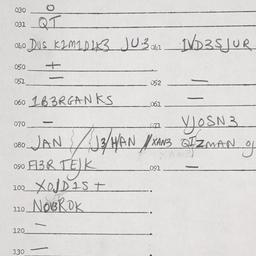 030 O
031 QT
040 DUS K2M1D1K3 JU3 041 IVD3SJUR
050 +
051 — 052 —
060 1B3RGANKS 061 —
070 — VJOSN3
080 JAN / J3/HAN //XAN3 GIZMAN OJ
090 FI3R TEJK 091 —
100 XO/D1S +
110 NOBROK
120 —
130 —